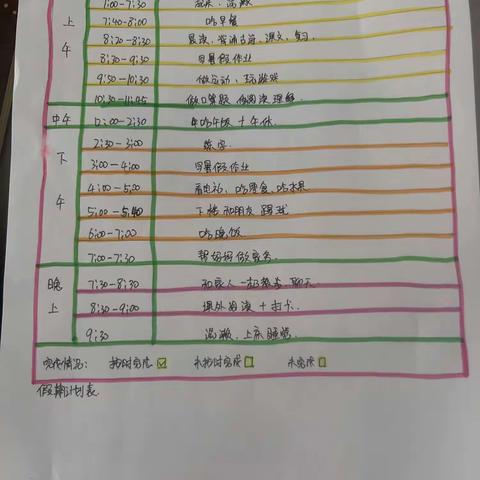 上午
7:00-7:30 起床、洗漱
7:40-8:00 吃早餐
8:20-8:30 晨读
8:30-9:30 暑假作业
9:50-10:30 做运动、玩游戏
10:30-11:45 做口算题 阅读理解
中午 12:00-2:30 吃午饭+午休
下午
2:30-3:00 练字
3:00-4:00 暑假作业
4:00-5:00 看电视、吃零食、吃水果
5:00-5:40 下楼和朋友 嬉戏
6:00-7:00 吃晚饭
7:00-7:30 帮妈妈做家务
晚上
7:30-8:30 和家人一起散步 聊天
8:30-9:00 课外阅读+打卡
9:30 洗漱、上床睡觉
完成情况: 按时完成 未按时完成 未完成
假期计划表